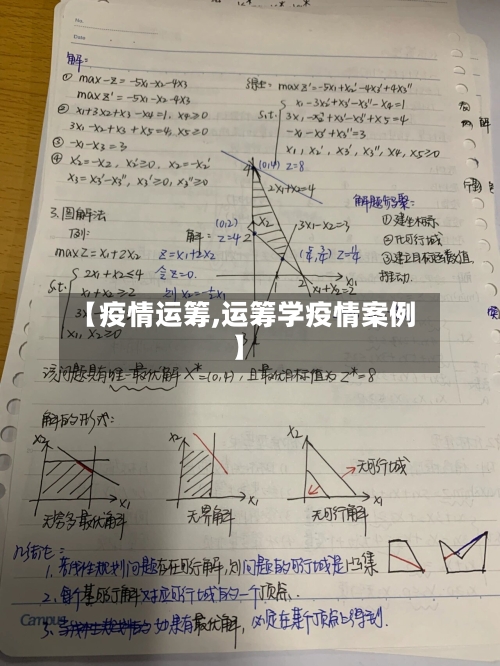 No.
Date
解:
① max -z = -5x₁-x₂-4x₃
max z' = -5x₁-x₂-4x₃
② x₁+3x₂+x₃-x₄=1, x₄≥0
3x₁-x₂+x₃+x₅=4, x₅≥0
③ -x₁-x₃=3
④ x₂'=-x₂, x₂'≥0, x₂=-x₂'
x₃=x₃'-x₃'', x₃'≥0, x₃''≥0
max z'=-5x₁+x₂'-4x₃'+4x₃''
s.t.
x₁-3x₂'+x₃'-x₃''-x₄=1
-x₁-x₃'+x₃''=3
x₁, x₂', x₃', x₃'', x₄, x₅≥0
3.图解法
max z = x₁+2x₂
s.t.
2x₁+x₂≤4
x₁+x₂≥2
x₁, x₂≥0
z=x₁+2x₂
令z=0.
(0,4) z=8
2x₁+x₂=4
(0,2)
z=4
3x₁-x₂=3
x₁+x₂=2
解题步骤:
①建坐标系
②化可行域
③建立目标函数值,
推动.
【疫情运筹,运筹学疫情案例
】
该问题具有唯一最优解 X*=(0,4), 且最优目标值为 Z*=8
解的形式:
x₂
x₁
无穷多最优解
x₂
x₁
无界解
x₂
x₁
无可行域
无可行解
1. 若线性规划问题存在可行解,则问题的可行域是凸集
2. 每个基可行解对应可行域的一个顶点.
3. 如果有最优解, 必定在某个顶点上得到.
Campus